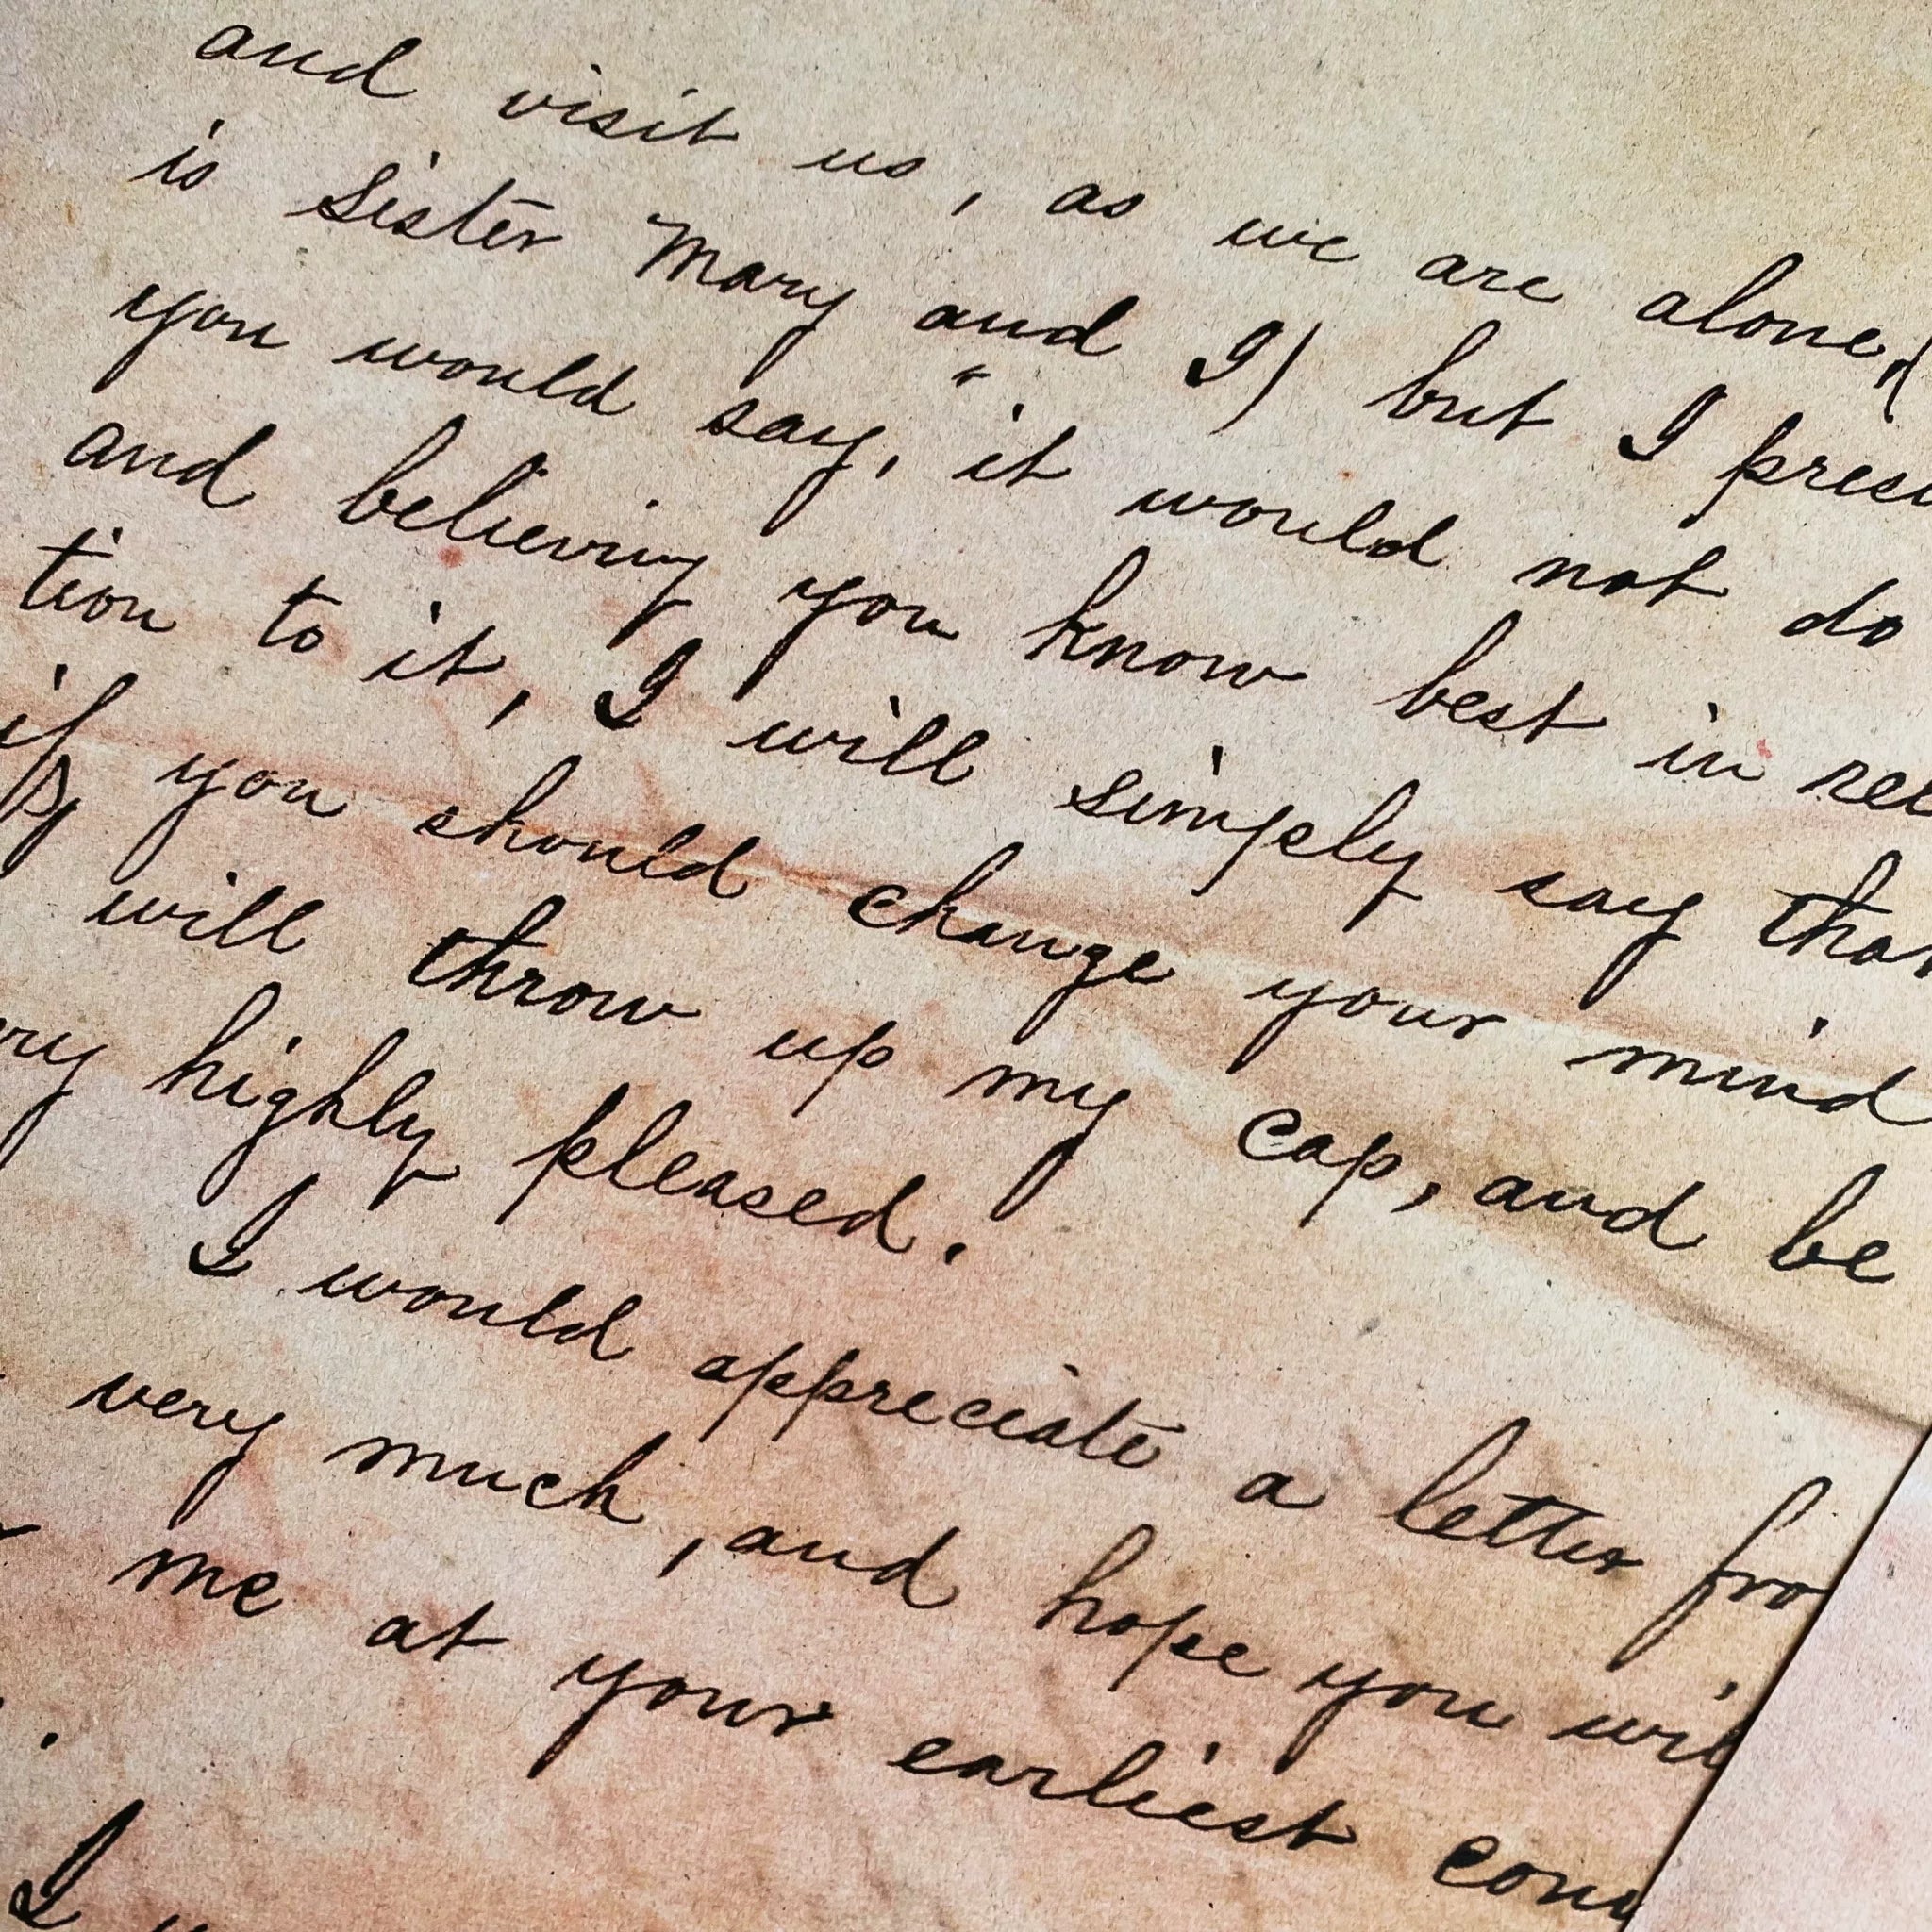 and visit us, as we are alone, (
is Sister Mary and I) but I presu
you would say, "it would not do
and believing you know best in rel
tion to it, I will simply say that
if you should change your mind
I will throw up my cap, and be
ry highly pleased.
I would appreciate a letter fro
very much, and hope you wil
me at your earliest conv
.
I